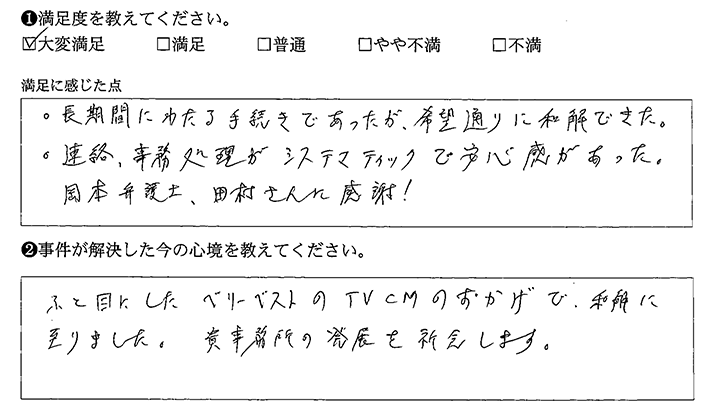 ❶満足度を教えてください。
☑大変満足 □満足 □普通 □やや不満 □不満
満足に感じた点
。長期間にわたる手続きであったが、希望通りに和解できた。
。連絡、事務処理がシステマティックで安心感があった。
岡本弁護士、田村さんに感謝!
❷事件が解決した今の心境を教えてください。
ふと目にしたベリーベストのTVCMのおかげで、和解に
至りました。貴事務所の発展を祈念します。